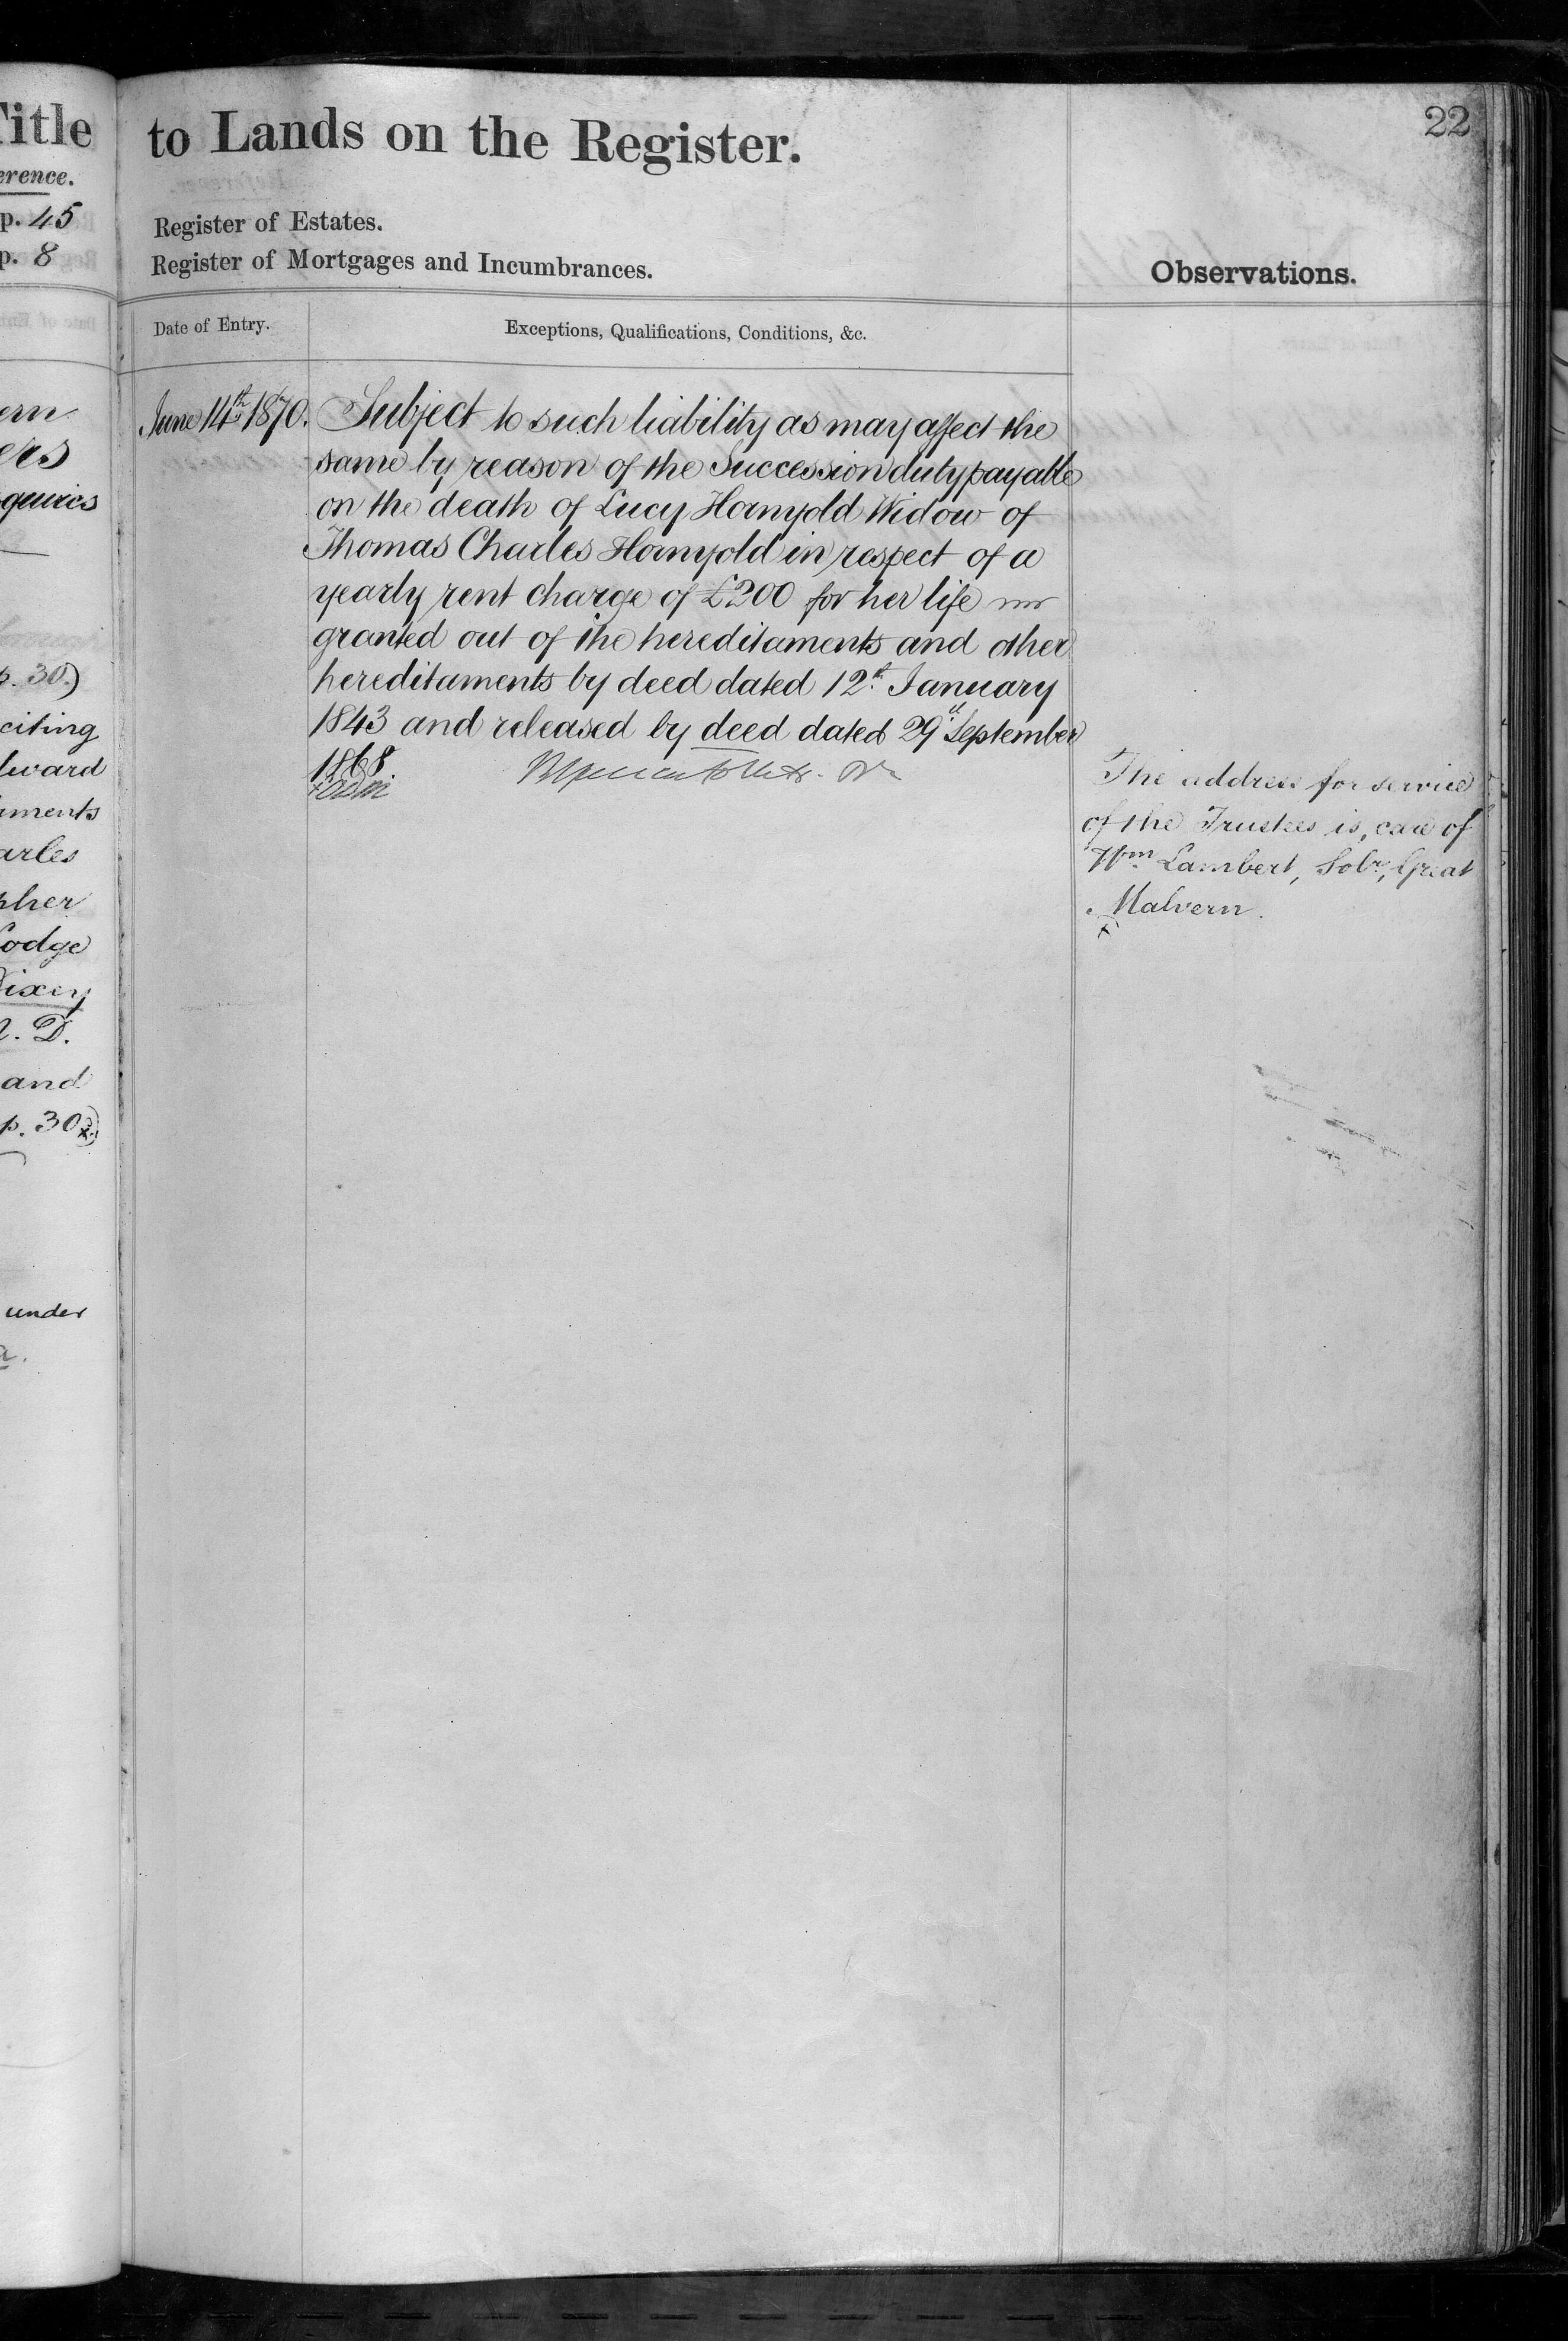 Title
erence.
p. 45
p. 8
ern
ers
quires
p. 30.)
citing
dward
aments
arles
pher
Lodge
Dixey
D.
and
p. 30
under
22
to Lands on the Register.
Register of Estates.
Register of Mortgages and Incumbrances.
Observations.
Date of Entry.
Exceptions, Qualifications, Conditions, &c.
June 14th 1870.
Subject to such liability as may affect the
same by reason of the Succession duty payable
on the death of Lucy Hornyold Widow of
Thomas Charles Hornyold in respect of a
yearly rent charge of £200 for her life
granted out of the hereditaments and other
hereditaments by deed dated 12th January
1843 and released by deed dated 29th September
1868.
The address for service
of the Trustees is, care of
Wm Lambert, Solr, Great
Malvern.
x